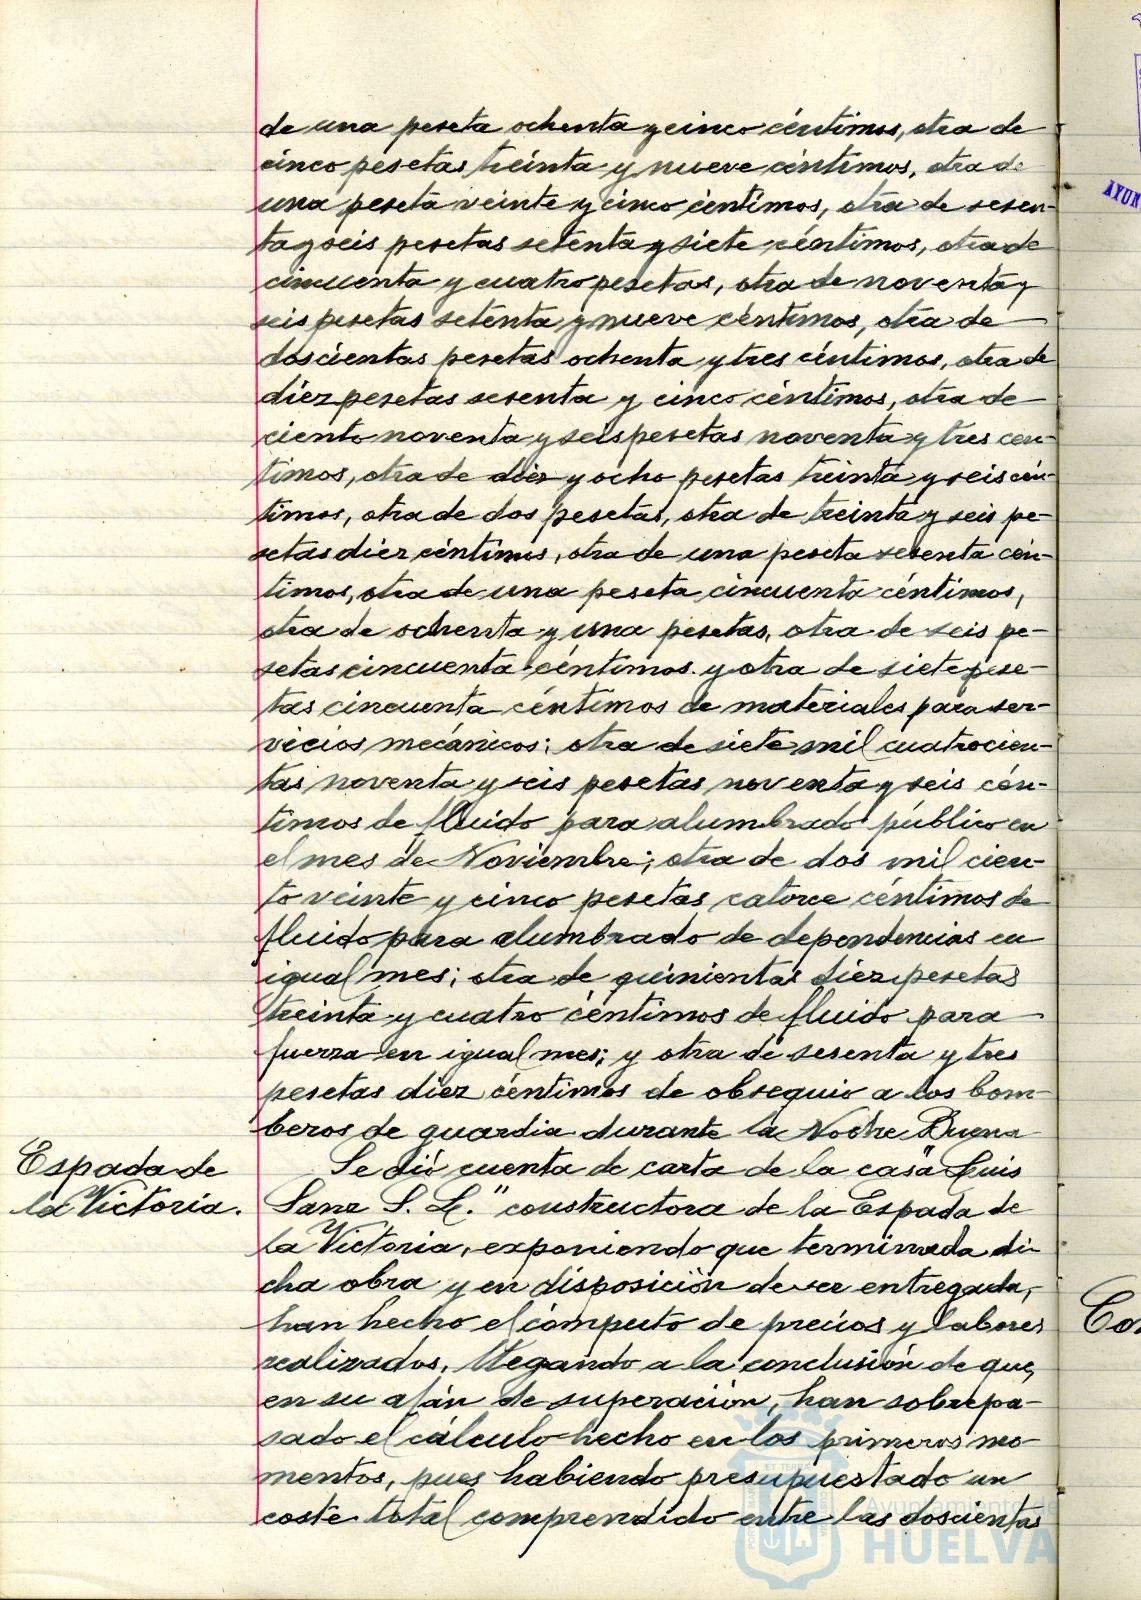 de una peseta ochenta y cinco céntimos, otra de
cinco pesetas treinta y nueve céntimos, otra de
una peseta veinte y cinco céntimos, otra de sesen-
ta y seis pesetas setenta y siete céntimos, otra de
cincuenta y cuatro pesetas, otra de noventa y
seis pesetas setenta y nueve céntimos, otra de
doscientas pesetas ochenta y tres céntimos, otra de
diez pesetas sesenta y cinco céntimos, otra de
ciento noventa y seis pesetas noventa y tres cén-
timos, otra de diez y ocho pesetas treinta y seis cén-
timos, otra de dos pesetas, otra de treinta y seis pe-
setas diez céntimos, otra de una peseta sesenta cén-
timos, otra de una peseta cincuenta céntimos,
otra de ochenta y una pesetas, otra de seis pe-
setas cincuenta céntimos y otra de siete pese-
tas cincuenta céntimos de materiales para ser-
vicios mecánicos; otra de siete mil cuatrocien-
tas noventa y seis pesetas noventa y seis cén-
timos de fluido para alumbrado público en
el mes de Noviembre; otra de dos mil cien-
to veinte y cinco pesetas catorce céntimos de
fluido para alumbrado de dependencias en
igual mes; otra de quinientas diez pesetas
treinta y cuatro céntimos de fluido para
fuerza en igual mes; y otra de sesenta y tres
pesetas diez céntimos de obsequio a los bom-
beros de guardia durante la Noche Buena
Espada de
la Victoria.
Se dió cuenta de carta de la casa "Luis
Sanz S. L." constructora de la Espada de
la Victoria, exponiendo que terminada di-
cha obra y en disposición de ser entregada,
han hecho el cómputo de precios y labores
realizados, llegando a la conclusión de que,
en su afán de superación, han sobrepa-
sado el cálculo hecho en los primeros mo-
mentos, pues habiendo presupuestado un
coste total comprendido entre las doscientas
AYUN
Co
Ayuntamiento de
HUELVA